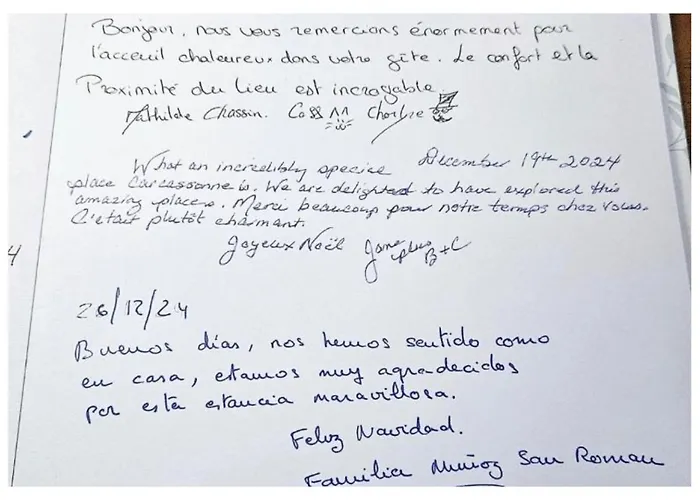 Bonjour, nous vous remercions énormement pour
l'acceuil chaleureux dans votre gîte. Le confort et la
Proximité du lieu est incroyable.
Mathilde Chassin. Charlie
What an incredibly special December 19th 2024
place Carcassonne is. We are delighted to have explored this
amazing place. Merci beaucoup pour notre temps chez vous.
C'était plutôt charmant.
Joyeux Noël Jane plus B+C
26/12/24
Buenos días, nos hemos sentido como
en casa, estamos muy agradecidos
por esta estancia maravillosa.
Feliz Navidad.
Familia Muñoz San Roman